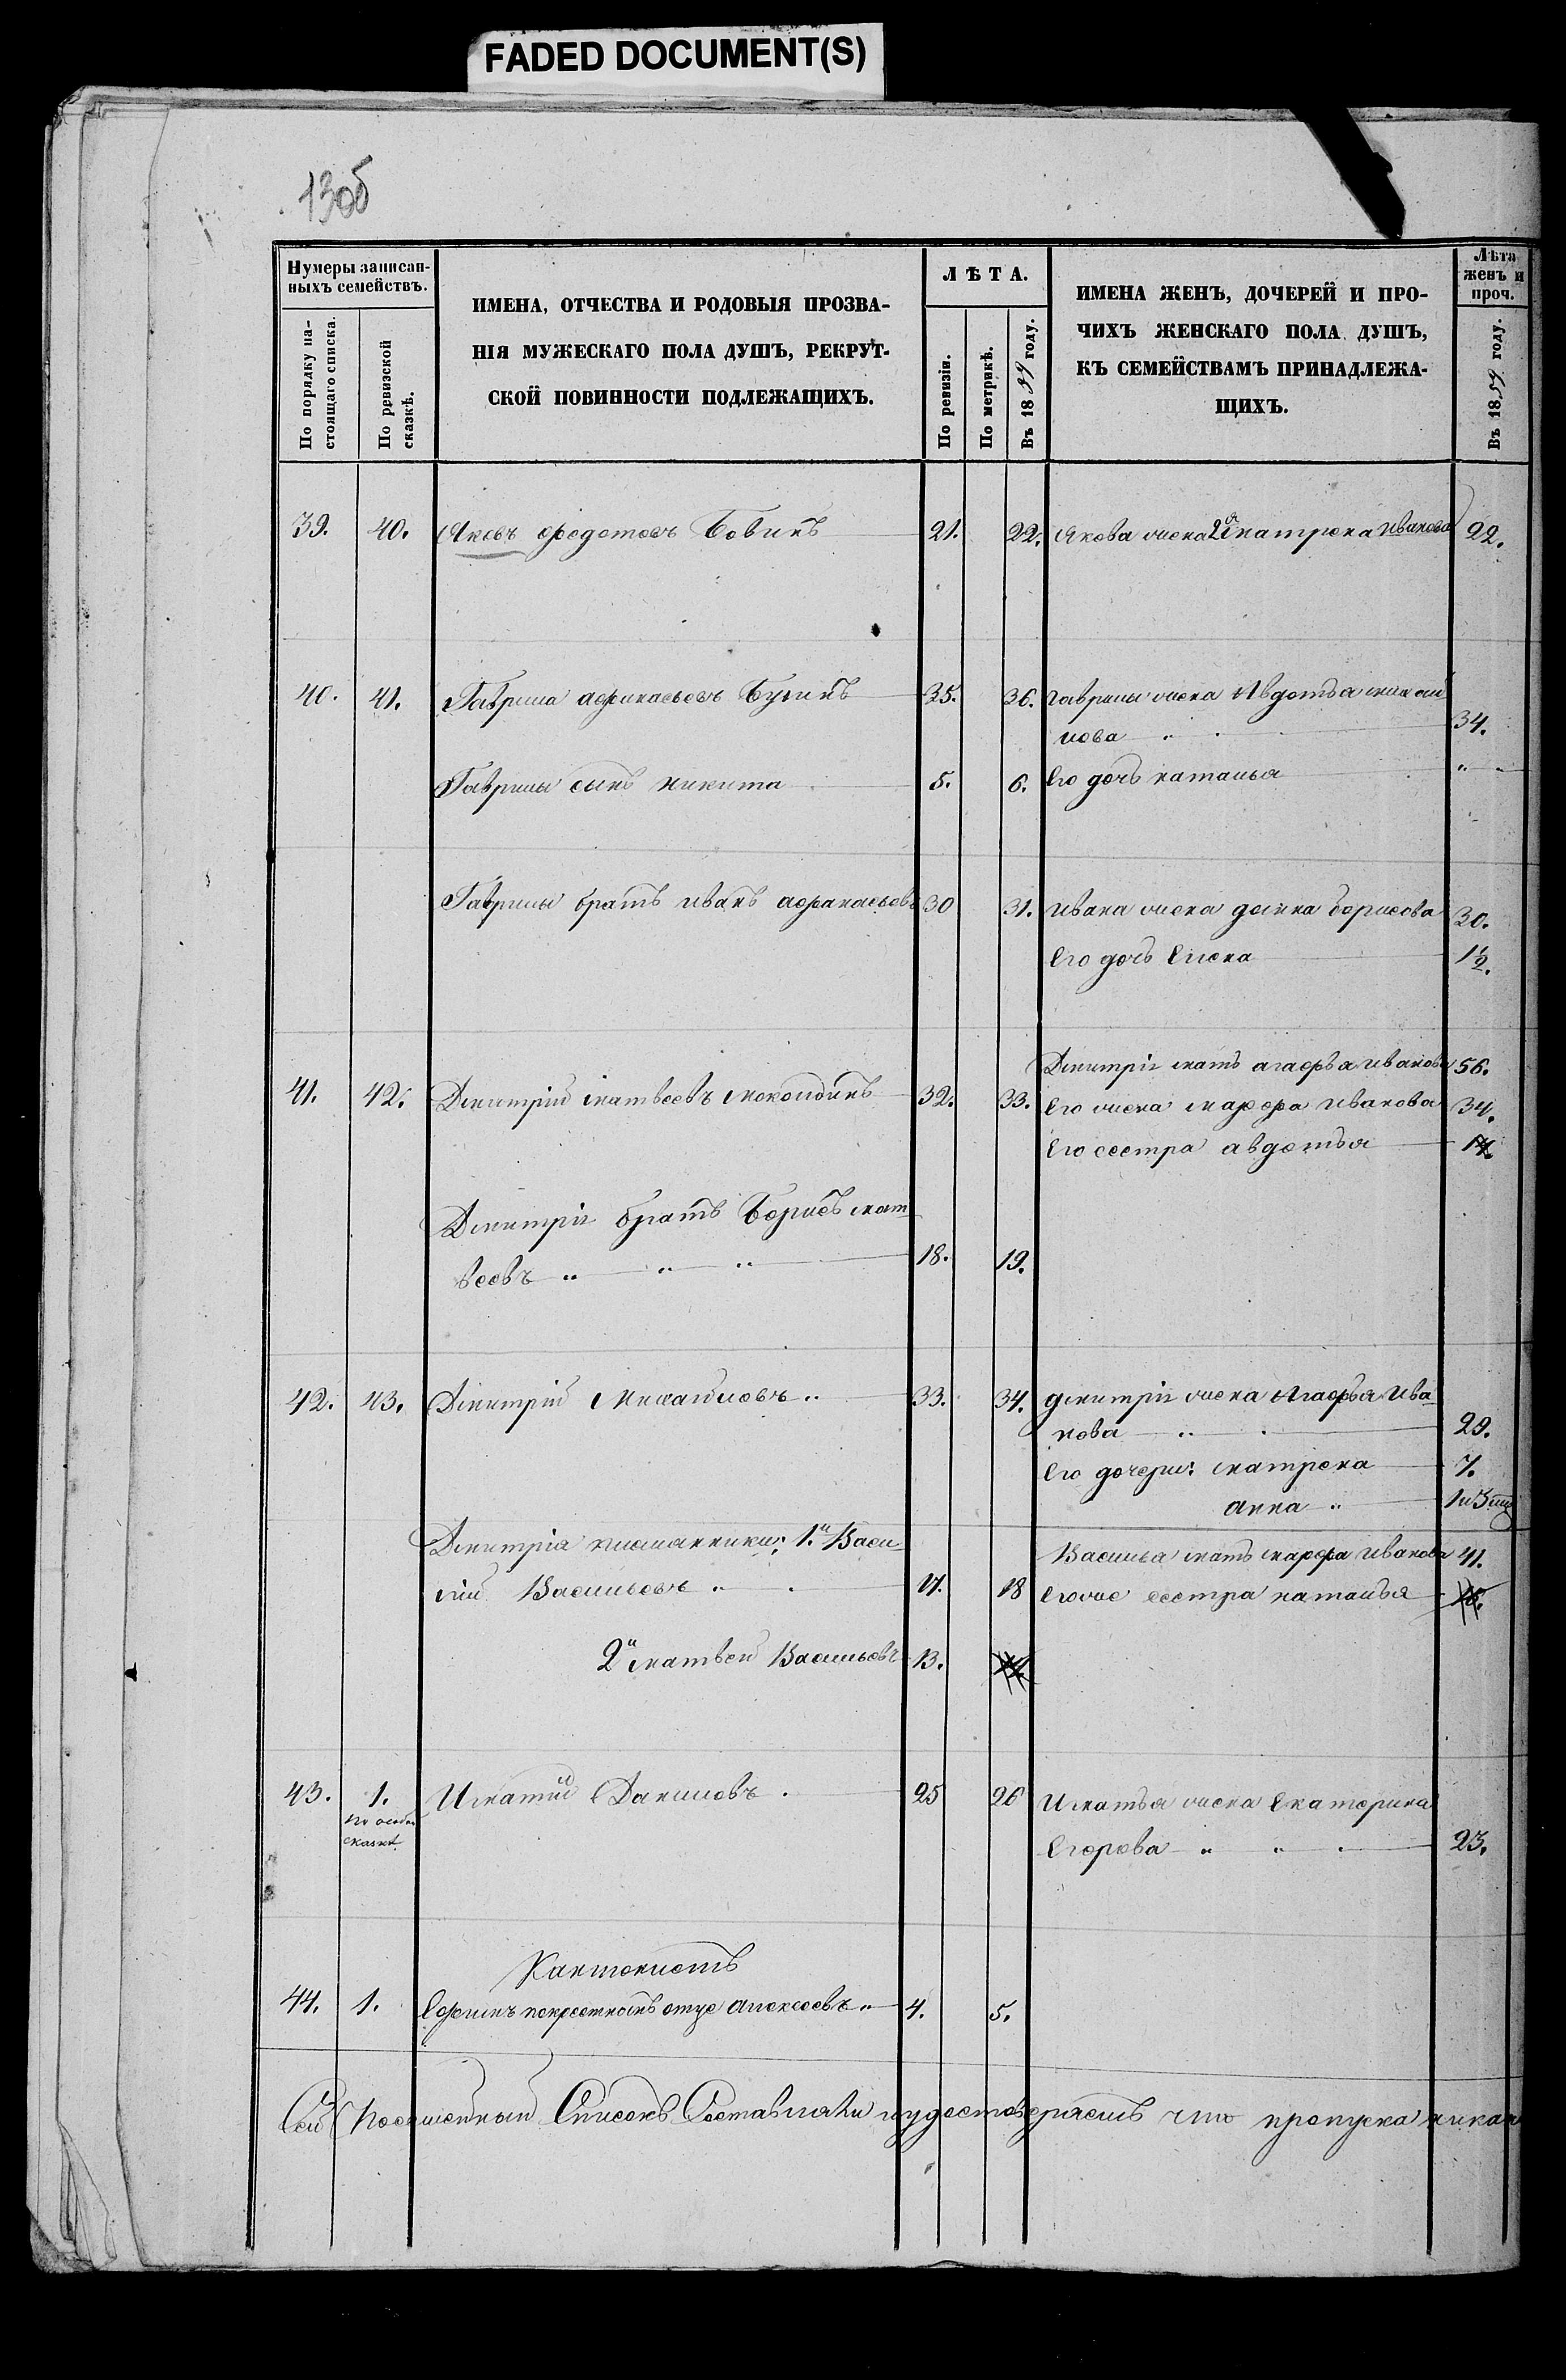 FADED DOCUMENT(S)
130б
Нумеры записан-
ныхъ семействъ.
По порядку на-
стоящаго списка.
По ревизской
сказкѣ.
ИМЕНА, ОТЧЕСТВА И РОДОВЫЯ ПРОЗВА-
НІЯ МУЖЕСКАГО ПОЛА ДУШЪ, РЕКРУТ-
СКОЙ ПОВИННОСТИ ПОДЛЕЖАЩИХЪ.
ЛѢТА.
По ревизіи.
По метрикѣ.
Въ 1859 году.
ИМЕНА ЖЕНЪ, ДОЧЕРЕЙ И ПРО-
ЧИХЪ ЖЕНСКАГО ПОЛА ДУШЪ,
КЪ СЕМЕЙСТВАМЪ ПРИНАДЛЕЖА-
ЩИХЪ.
Лѣта
женъ и
проч.
Въ 1859 году.
39. 40. Яковъ Федотовъ Бовинъ 21. 22. Якова жена 2я Матрена Иванова 22.
40. 41. Гаврила Афанасьевъ 35. 36. Гаврилы жена Авдотья Михай
лова 34.
Гаврилы сынъ Никита 5. 6. Его дочь Наталья "
Гаврилы братъ Иванъ Афанасьевъ 30 31. Ивана жена Домна Борисова 30.
Его дочь Елена 1/2.
Дмитрія мать Агафья Иванова 56.
41. 42. Дмитрій Матвеевъ 32. 33. Его жена Марфа Иванова 34.
Его сестра Авдотья 14.
Дмитрія братъ Борисъ Мат
веевъ " " " 18. 19.
42. 43. Дмитрій Михайловъ " 33. 34. Дмитрія жена Агафья Ива-
нова " 29.
Его дочери: Матрена 7.
Анна " 1 и 3 м
Дмитрія племянники: 1й Васи
Василья мать Марфа Иванова 41.
лій Васильевъ " 17. 18 Его же сестра Наталья 16.
2й Матвей Васильевъ 13. 14.
43. 1. Игнатій Даниловъ 25 26 Игнатья жена Екатерина
по особой
сказкѣ
Егорова " " 23.
Кантонистъ
44. 1. Ефимъ по крестномъ отце Алексеевъ " 4. 5.
Сей Посемейный Списокъ Составляли и удостоверяемъ что пропуска никак